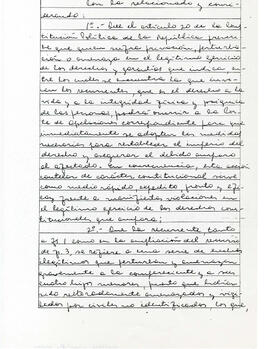 Con lo relacionado y consi-
derando:
1º.- Que el artículo 20 de la Cons-
titución Política de la República previe-
ne que quien sufra privación, perturba-
ción o amenaza en el legítimo ejercicio
de los derechos y garantías que indica, en-
tre los cuales se encuentra la que invo-
can los recurrentes, que es el derecho a la
vida y a la integridad física y psíquica
de las personas, podrá ocurrir a la Cor-
te de Apelaciones correspondiente para que
inmediatamente se adopten las medidas
necesarias para restablecer el imperio del
derecho y asegurar el debido amparo
al afectado. En consecuencia, esta acción
cautelar de carácter constitucional sirve
como medio rápido, expedito, pronto y efi-
caz frente a manifiestas violaciones en
el legítimo ejercicio de los derechos cons-
titucionales que ampara;
2º.- Que la recurrente tanto
a fs. 1 como en la ampliación del recurso
de fs. 3, se refiere a una serie de hechos
ilegítimos que perturban y amenazan
gravemente a la compareciente y a sus
cuatro hijos menores, puesto que habían
sido reiteradamente amenazados y vigi-
lados por civiles no identificados, los que,